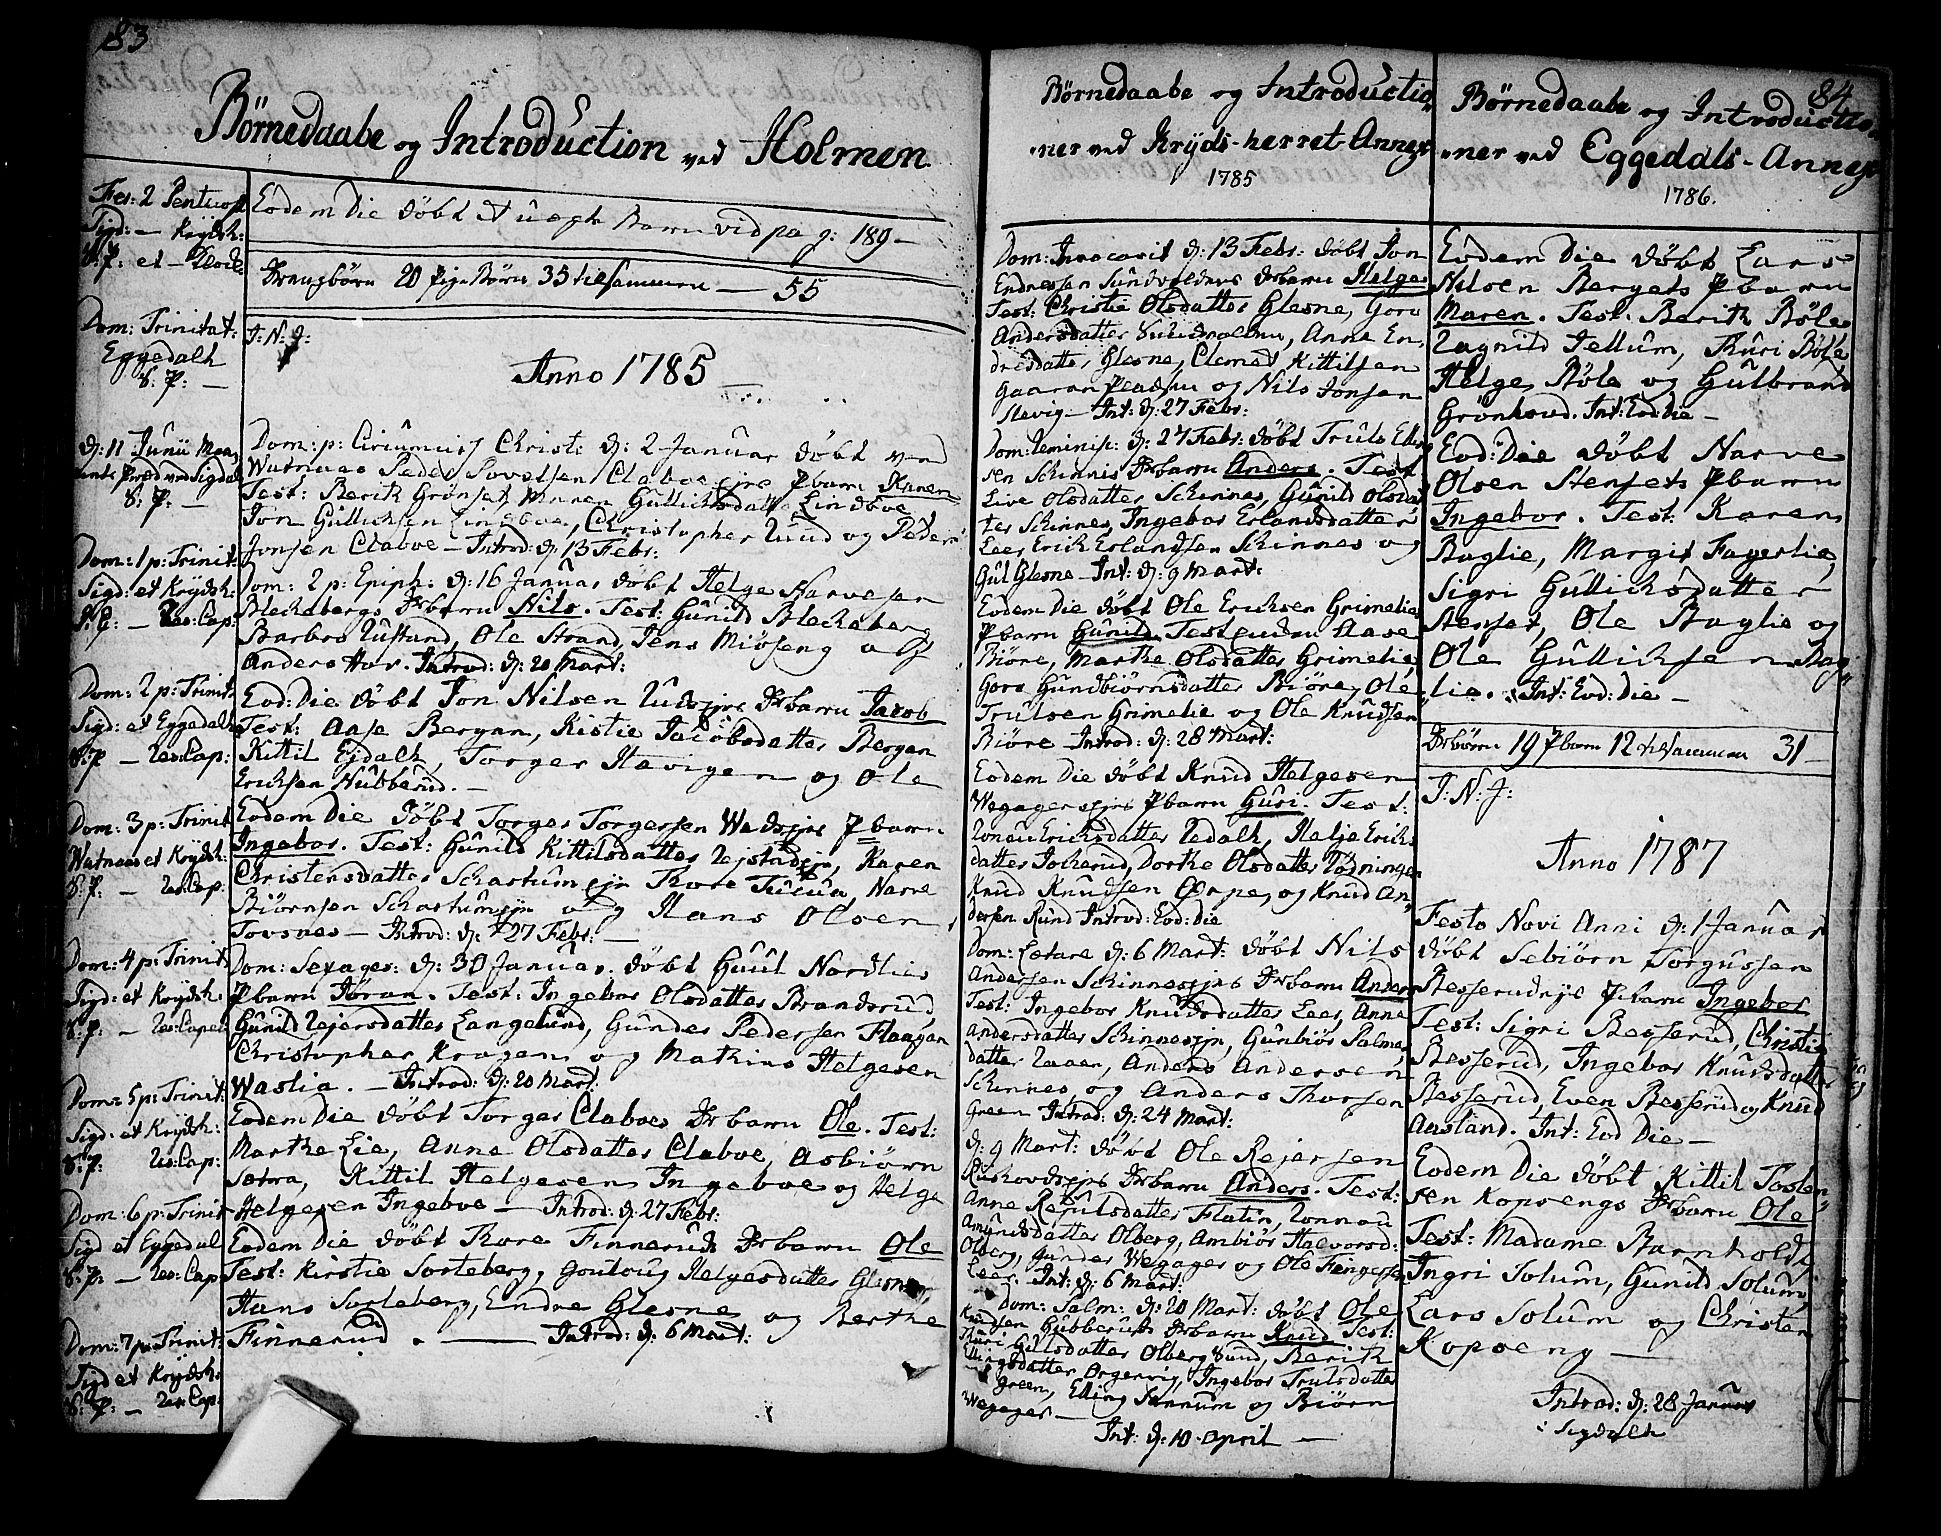 83
Börnedaabe og Introduction ved Holmen
Fer: 2 Pentecost
Sigd: — Krydsh:
S: P: et —
Dom: Trinitat:
Eggedalh
S: P: —
d: 11 Junii
S: P: —
Dom: 1 p: Trinit:
Sigd: et Krydsh:
— Res: Cap:
Dom: 2 p: Trinit:
Sigd: et Eggedalh
S: P — Res: Cap:
Dom: 3 p: Trinit
Watnaas et Krydsh:
S: P: — Res: Cap:
Dom: 4 p: Trinit
Sigd: et Krydsh:
S: P: — Res: Capel:
Dom: 5 p: Trinit:
Sigd: et Krydsh:
S: P: Res: Cap:
Dom: 6 p: Trinit
Sigd et Eggedal
S: P: — Res: Cap
Dom: 7 p: Trinit:
Sigd et Krydsh:
S: P: — Res: Cap:
Eodem Die döbt et uegte Barn vid pag: 189 —
Drengbörn 20 Pige Börn 35 tilsammen — 55
J: N: J:
Anno 1785 —
Dom: p: Circumcis Christi d: 2 Januar döbt ved
Watnaas Peder Claboe ejes P barn Karen
Test: Berit Grönset, Gullichsdatter Lindboe
Jon Gullichsen Lindboe, Christopher Ruud og Peder
Jonsen Claboe — Introd: d: 13 Febr:
Dom: 2 p: Epiph: d: 16 Januar döbt Helge Narvesen
Blechebergs Dr barn Nils. Test: Gunild Blecheberg
Barbro Rustand, Ole Strand, Jens Miöseng og
Anders Hov. Introd: d: 20 Mart:
Eod: Die döbt Jon Nilsen Rudsejes Dr barn Jacob
Test: Aase Bergan, Kistie Jacobsdatter Bergan
Kittil Ejdalh, Torger Havigen og Ole
Erichsen Hubberud. —
Eodem Die döbt Torger Torgersen Wedsejes P barn
Ingebor. Test: Gunild Kittilsdatter, Karen
Christensdatter Schartumeje Thore, Narve
Biörnsen Schartumeje og Hans Olsen
Tovsnes — Introd: d: 27 Febr: —
Dom: Sexages: d: 30 Januar. döbt Guul Nordlies
P barn Jöran. Test: Ingebor Olsdatter Branderud,
Gunild Rejersdatter Langelund, Gunder Pedersen Flaagan
Christopher Kragen og Mathias Helgesen
Waslia. — Introd: d: 20 Mart:
Eodem Die döbt Torger Claboes Dr barn Ole. Test:
Marthe Lie, Anne Olsdatter Claboe, Asbiörn
Sætra, Kittil Helgesen Ingeboe og Helge
Helgesen Ingeboe — Introd: d: 27 Febr:
Eodem Die döbt Thore Finneruds Dr barn Ole
Test: Kirstie Sorteberg, Goutoug Helgesdatter Glesne
Hans Sorteberg, Endre Glesne og Berthe
Finnerud. — Introd: d: 6 Mart:
Börnedaabe og Introductio„
„ner ved Kryds-herret-Annex
1785
Dom: Invocavit d: 13 Febr: döbt Jon
Endresen Sundvoldens Dr barn Helge
Test: Christie Olsdatter Glesne, Goro
Andersdatter, Anne En„
dresdatter Glesne, Clemet Kittilsen
Gaaran og Nils Jonsen
Slevig — Int: d: 27 Febr:
Dom: Reminisc: d: 27 Febr: döbt Truls Elling
sen Schinnes Dr barn Anders. Test
Live Olsdatter Schinnes, Gunild Olsdat
ter Schinnes, Ingebor Erlandsdatter
Leer, Erich Erlandsen Schinnes og
Gul Glesne — Int: d: 9 Mart:
Eodem Die döbt Ole Erichsen Grimelies
P barn Gunild. Test Aase
Biöre, Marthe Olsdatter Grimelie,
Goro Gundbiörnsdatter Biöre, Ole
Trulsen Grimelie og Ole Knudsen
Biöre Introd: d: 28 Mart:
Eodem Die döbt Knud Helgesen
Wegagersejes P barn Guri. Test:
Ronau Erichsdatter Redalh, Helje Erichs
datter Jocherud, Dorthe Olsdatter Rödningen
Knud Knudsen Oerpe, og Knud An„
dersen Rund Introd: Eod: die
Dom: Lætare d: 6 Mart: döbt Nils
Andersen Schinnesejes Dr barn Anders
Test: Ingebor Knudsdatter Leer, Anne
Andersdatter Schinneseje, Gunbiör Palmes
datter Raaen, Anders Andersen
Schinnes, og Anders Thorsen
Green Introd: d: 24 Mart:
d: 9 Mart: döbt Ole Rejersen
Ruskovdsejes Dr barn Anders. Test:
Anne Rejulsdatter Flatin, Ronnau
Amundsdatter Olberg, Ambiör Halvorsd:
Olberg, Gunder Wegager og Ole Flengersen
Leer. Int: d: 6 Mart:
Dom: Palm: d: 20 Mart: döbt Ole
Knudsen Gubberuds Dr barn Knud Test:
Thuri Gulsdatter Olberg Sund, Berith
Ellingsdatter Orgervig, Ingebor Trulsdatter
Green, Elling Sannum og Biörn
Wegager —
Int: d: 10 April —
84
Börnedaabe og Introductio„
„ner ved Eggedals-Annex
1786.
Eodem Die döbt Lars
Nilsen Bergets P barn
Maren. Test. Berith Böle
Ragnild Tellum, Thuri Böle
Helge Böle og Gulbrand
Grönhovd. Int: Eod: die —
Eod: Die döbt Narve
Olsen Stensets P barn
Ingebor. Test: Karen
Baglie, Margit Fagerlie,
Sigri Gullichsdatter
Stenset, Ole Baglie og
Ole Gullichsen Bag„
„lie. Int: Eod: die —
Dr börn 19 P barn 12 tilsammen 31 —
J: N: J:
Anno 1787
Festo Novi Anni d: 1 Januar
döbt Sebiörn Torgussen
Besserudeje P barn Ingebor
Test: Sigri Besserud, Christie
Besserud, Ingebor Knudsdatter
Besserud, Even Besserud og Knud
Aasland. Int: Eod Die —
Eodem Die döbt Kittil Tosten
sen Kopsengs Dr barn Ole
Test: Madame Barnholdt,
Ingri Solum, Gunild Solum,
Lars Solum og Christen
Kopseng —
Introd: d: 28 Januar
i Sigdalh